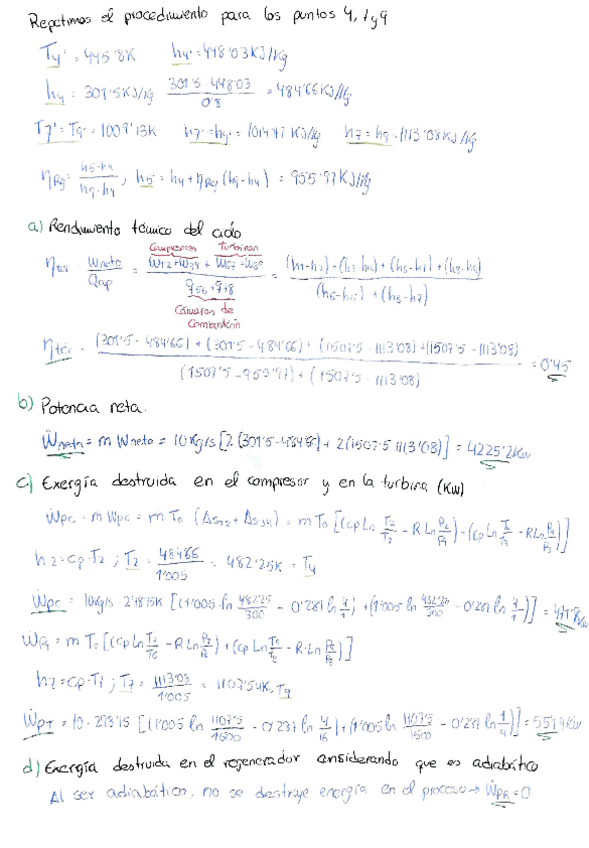 Repetimos el procedimiento para los puntos 4, 7 y 9
T4' = 445'8K h4' = 448'03 KJ/Kg
h4 = 301'5 KJ/kg 301'5 - 448'03 / 0'8 = 484'66 KJ/Kg
T7' = T9' = 1009'13K h7' = h9' = 1014'47 KJ/Kg h7 = h9 = 1113'08 KJ/Kg
ηRg = h5-h4 / h9-h4 ; h5 = h4 + ηRg (h9-h4) = 955'97 KJ/Kg
a) Rendimiento térmico del ciclo
Compresores Turbinas
ηter = Wneto / Qap = W12 + W34 + W67 + W89 / q56 + q78 = (h1-h2) + (h3-h4) + (h6-h7) + (h8-h9) / (h6-h5) + (h8-h7)
Cámaras de
Combustión
ηtér = (301'5 - 484'66) + (301'5 - 484'66) + (1507'5 - 1113'08) + (1507'5 - 1113'08) / (1507'5 - 955'97) + (1507'5 - 1113'08) = 0'45
b) Potencia neta.
Ẇneta = m Wneto = 10 Kg/s [2 (301'5 - 484'66) + 2 (1507'5 1113'08)] = 4225'2 Kw
c) Exergía destruida en el compresor y en la turbina (Kw)
ẆPC = m WPC = m T0 (Δs12 + Δs34) = m T0 [(Cp Ln T2/T1 - R Ln P2/P1) - (Cp Ln T4/T3 - R Ln P4/P3)]
h2 = Cp · T2 ; T2 = 484'66 / 1'005 = 482'25K = T4
ẆPC = 10 kg/s 298'15K [(1'005 · ln 482'25/300 - 0'287 ln 4/1) + (1'005 ln 482'25/300 - 0'287 ln 4/1)] =
h7 = Cp · T7 ; T7 = 1113'08 / 1'005 = 1107'54K = T9
d) Exergía destruida en el regenerador considerando que es adiabático
Al ser adiabático, no se destruye energía en el proceso → ẆPR = 0